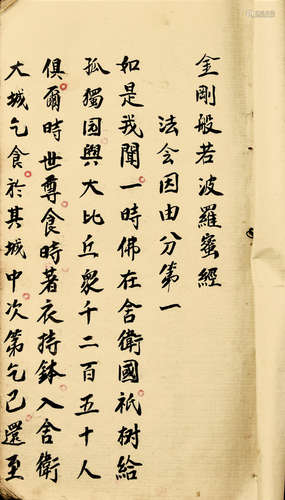 金剛般若波羅蜜經
法會因由分第一
如是我聞一時佛在舍衛國祇樹給
孤獨園與大比丘眾千二百五十人
俱爾時世尊食時著衣持鉢入舍衛
大城乞食於其城中次第乞已還至